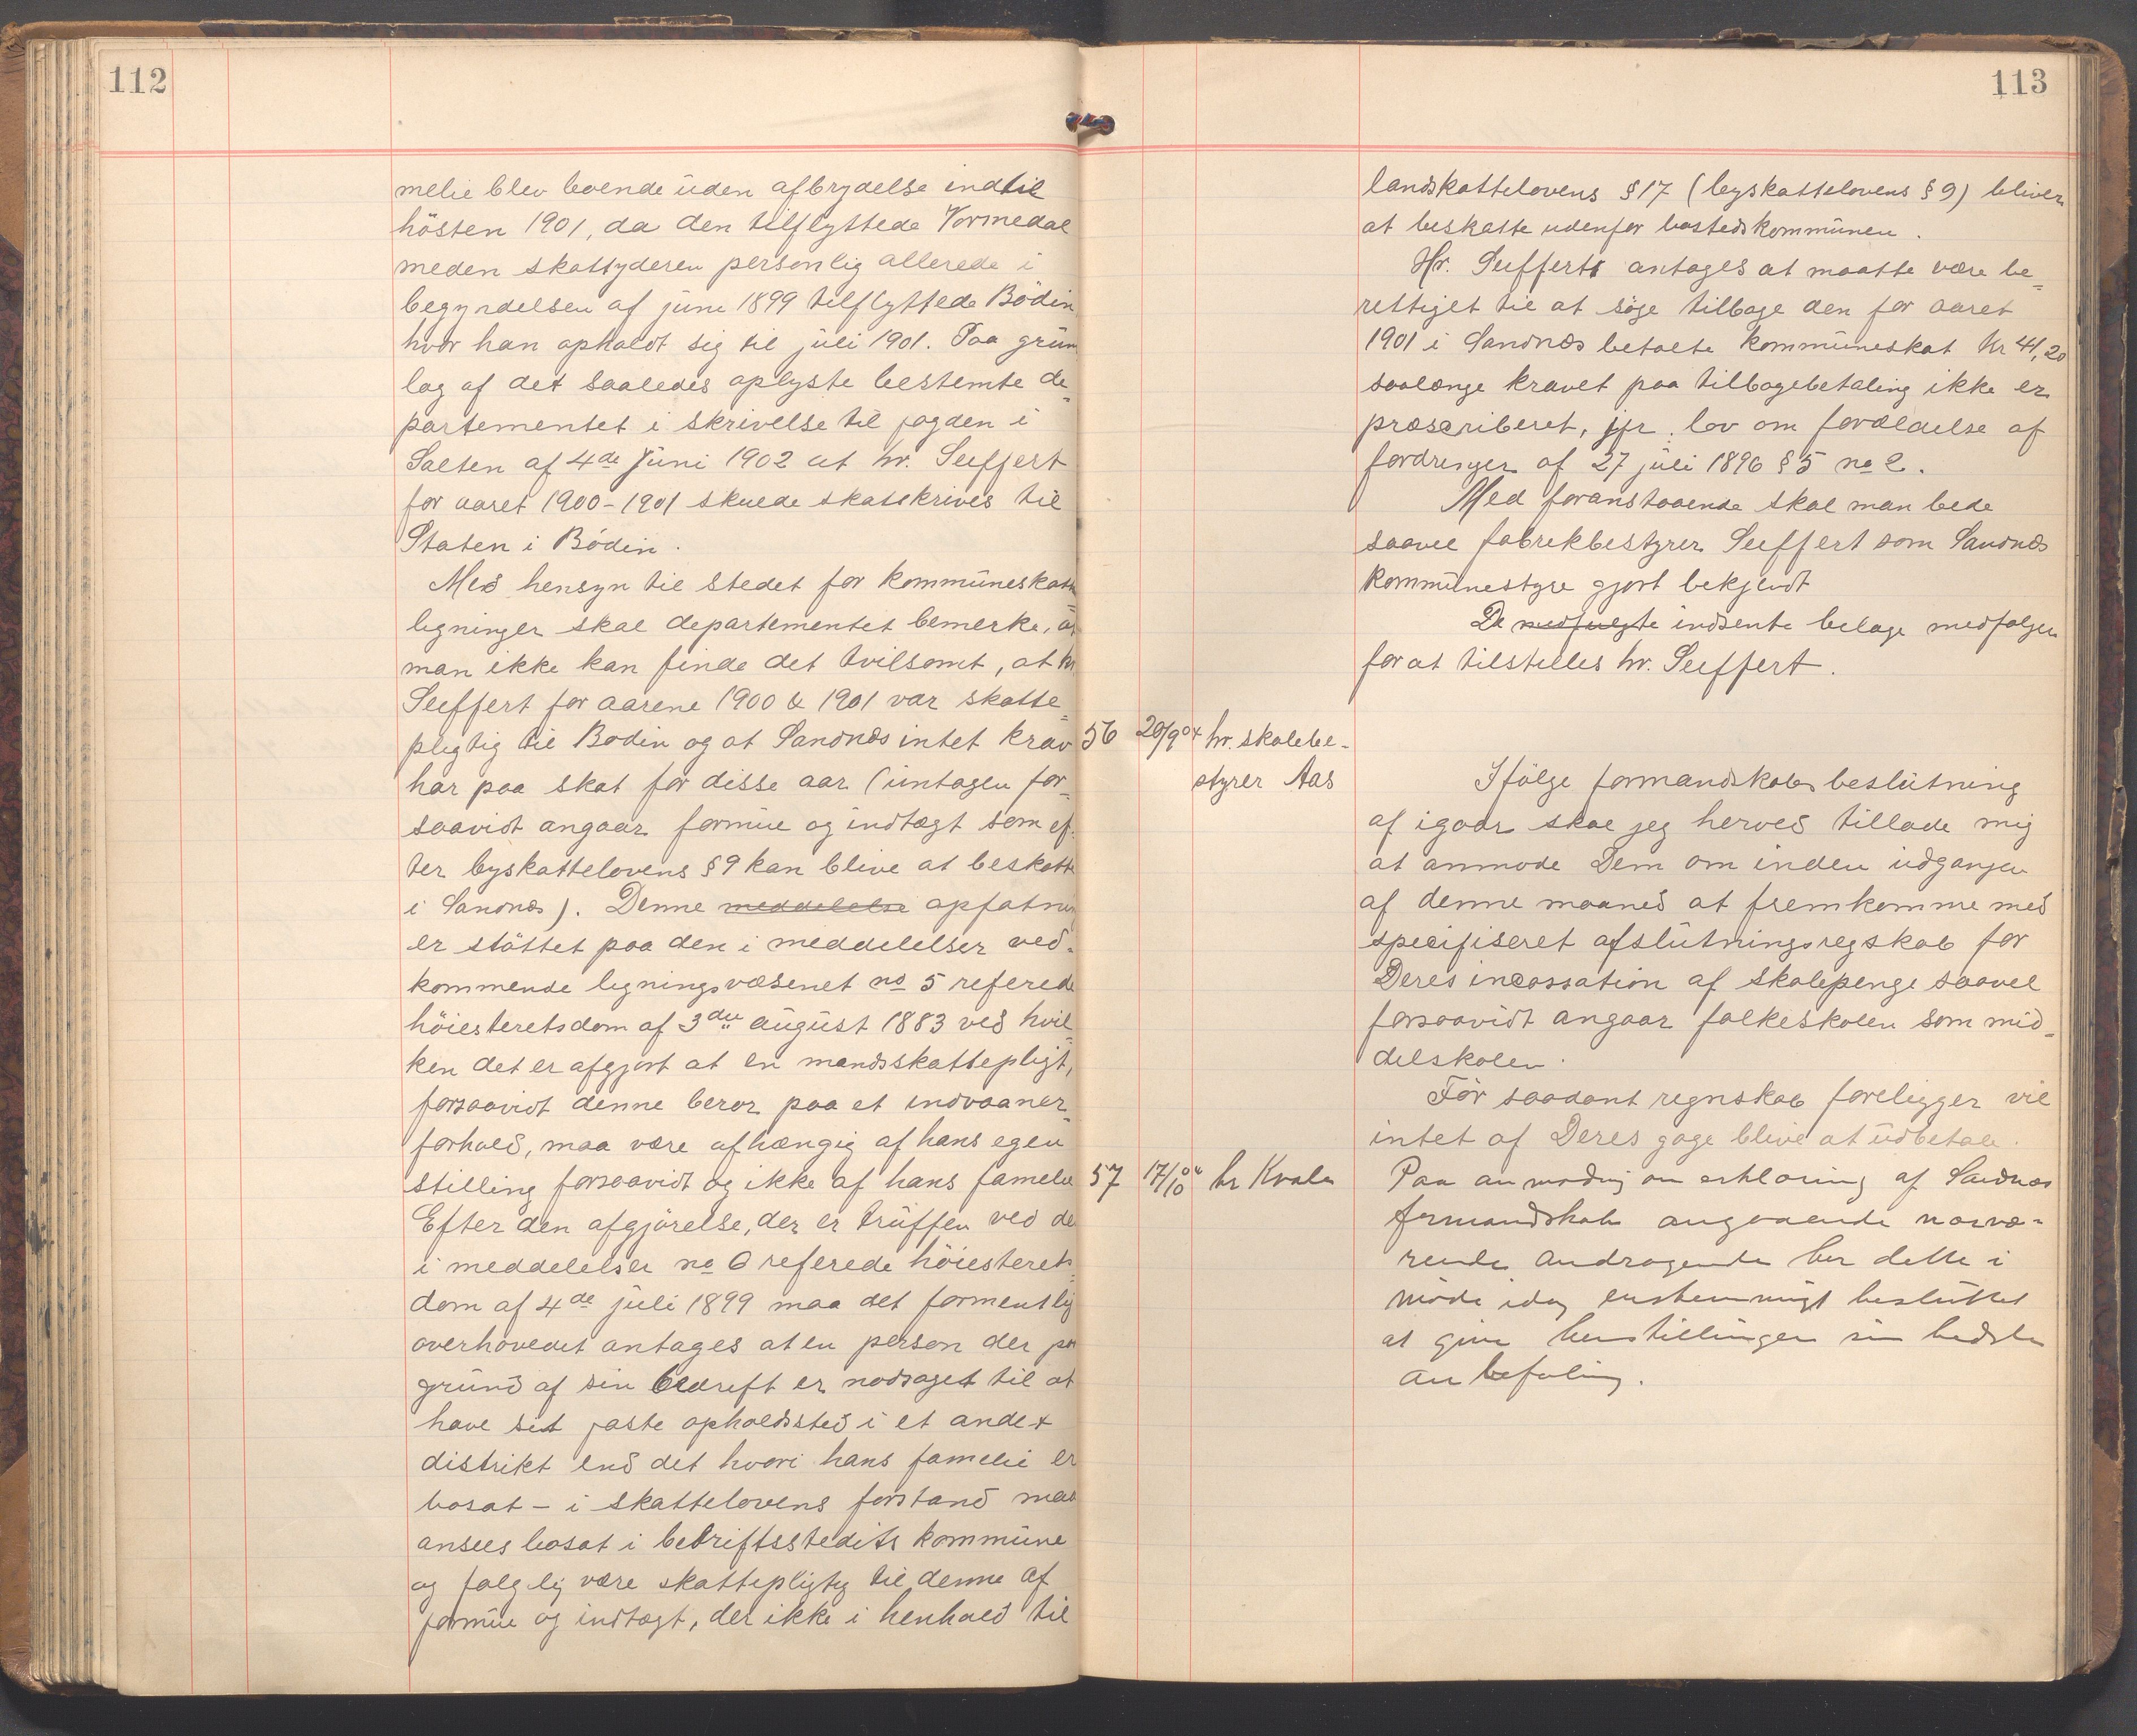 112
melie blev boende uden afbrydelse indtil
hösten 1901, da den tilflyttede Vormedal
meden skattyderen personlig allerede i
begyndelsen af juni 1899 tilflyttede Bödin
hvor han opholdt sig til juli 1901. Paa grun
lag af det saaledes oplyste bestemte de=
partementet i skrivelse til fogden i
Salten af 4de Juni 1902 at hr. Seeffert
for aaret 1900-1901 skulde skatskrives til
Staten i Bödin.
Med hensyn til stedet for kommuneskatte
ligninger skal departementet bemerke, at
man ikke kan finde det tvilsomt, at hr.
Seeffert for aarene 1900 & 1901 var skatte=
pligtig til Bodin og at Sandnæs intet krav
har paa skat for disse aar (untagen for=
saavidt angaar formue og indtægt som ef=
ter byskattelovens §9 kan blive at beskatte
i Sandnæs). Denne meddelelse opfatning
er stöttet paa den i meddelelser ved=
kommende ligningsvæsenet no 5 referede
höiesteretsdom af 3die august 1883 ved hvil=
ken det er afgjort at en mandsskattepligt,
forsaavidt denne beror paa et indvaaner=
forhold, maa være afhængig af hans egen
stilling forsaavidt og ikke af hans familie
Efter den afgjörelse, der er truffen ved de
i meddelelser no 6 referede höiesterets=
dom af 4de juli 1899 maa det formentlig
overhovedet antages at en person der paa
grund af sin bedrift er nodsaget til at
have sit faste opholdssted i et andet
distrikt end det hvori hans familie er
bosat - i skattelovens forstand maa
ansees bosat i bedriftsstedets kommune
og folglig være skattepligtig til denne af
formue og indtægt, der ikke i henhold til
113
landskattelovens §17 (byskattelovens §9) bliver
at beskatte udenfor bostedskommunen.
Hr. Seeffert antages at maatte være be=
rettiget til at söge tilbage den for aaret
1901 i Sandnæs betalte kommuneskat kr 41,20
saalænge kravet paa tilbagebetaling ikke er
præscriberet, jfr. lov om forældelse af
fordringer af 27 juli 1896 §5 no 2.
Med foranstaaende skal man bede
saavel fabrikbestyrer Seeffert som Sandnæs
kommunestyre gjort bekjendt
De medfulgte indsente belage medfölger
for at tilstilles hr. Seeffert.
56 20/9 04 hr. skolebe-
styrer Aas
Ifölge formandskabsbeslutning
af igaar skal jeg herved tillade mig
at anmode Dem om inden udgangen
af denne maaned at fremkomme med
specifiseret afslutningsregskab for
Deres incassation af skolepenge saavel
forsaavidt angaar folkeskolen som mid=
delskolen.
För saadant regnskab foreligger vil
intet af Deres gage blive at udbetale.
57 17/10 04 hr Kvale
Paa anmodning om erklæring af Sandnæs
formandskab angaaende nærvæ-
rende andragende har dette i
möde idag enstemmigt besluttet
at give henstillingen sin bedste
anbefaling.